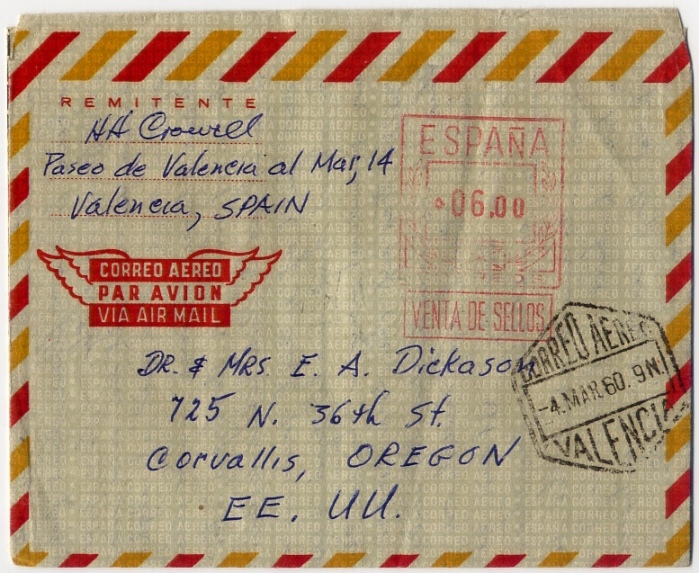 REMITENTE
HH Crowell
Paseo de Valencia al Mar, 14
Valencia, SPAIN
ESPAÑA
06.00
VENTA DE SELLOS
CORREO AEREO
PAR AVION
VIA AIR MAIL
DR. & MRS. E. A. Dickason
725 N. 36th St.
Corvallis, OREGON
EE. UU.
CORREO AEREO
-4.MAR.60. 9N.
VALENCIA